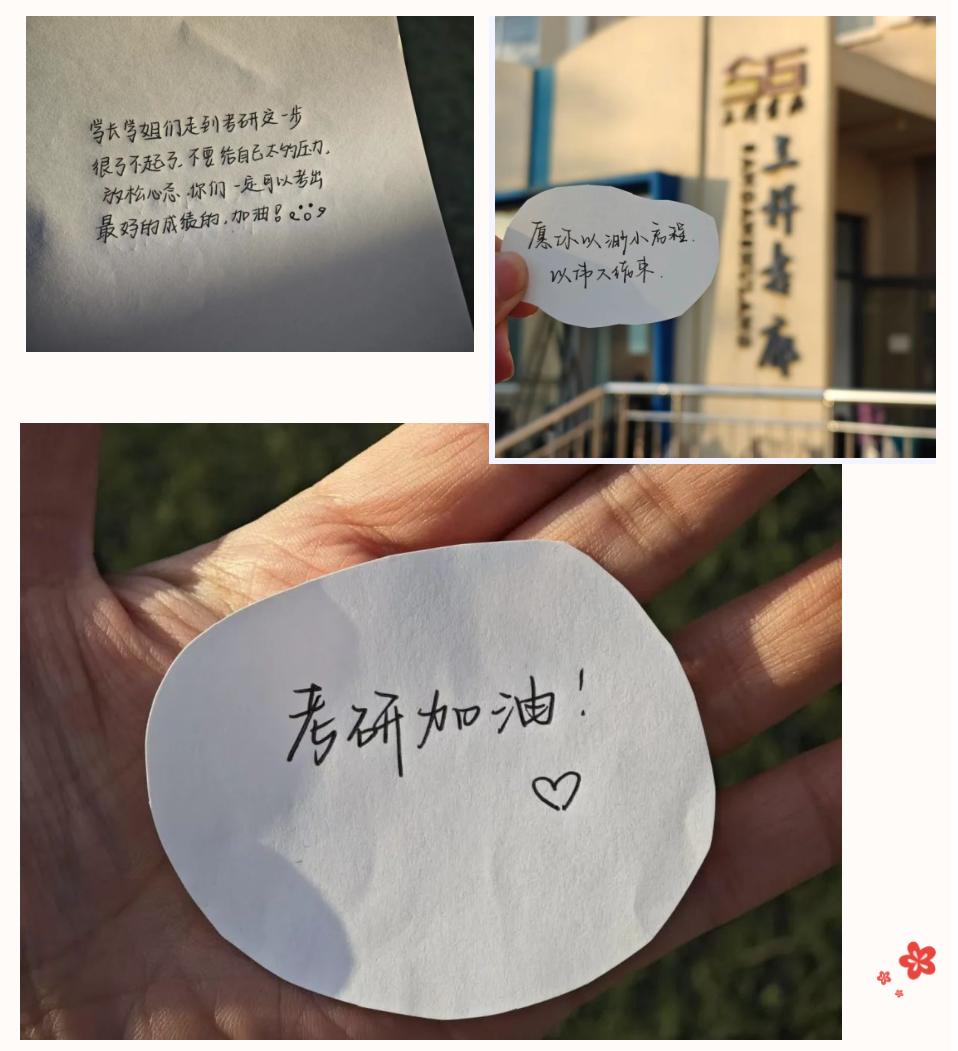 学长学姐们走到考研这一步
很了不起了,不要给自己太大的压力,
放松心态,你们一定可以考出
最好的成绩的,加油!
愿你以渺小启程,
以伟大结束.
三拜书廊
考研加油!